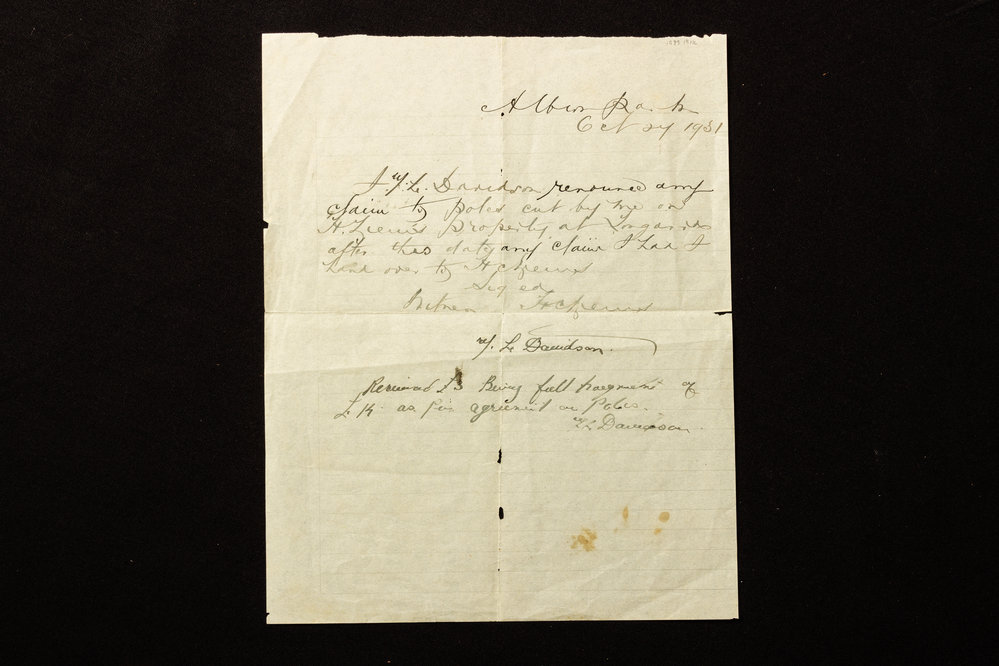 Albion Park
Oct 24 1931
I W. L. Davidson renounce any
claim to poles cut by me on
H. property at
after this date any claim I had I
hand over to H
Signed
Witness
W. L. Davidson.
£3 Being full payment of
as per agriment on Poles.
W L Davidson.